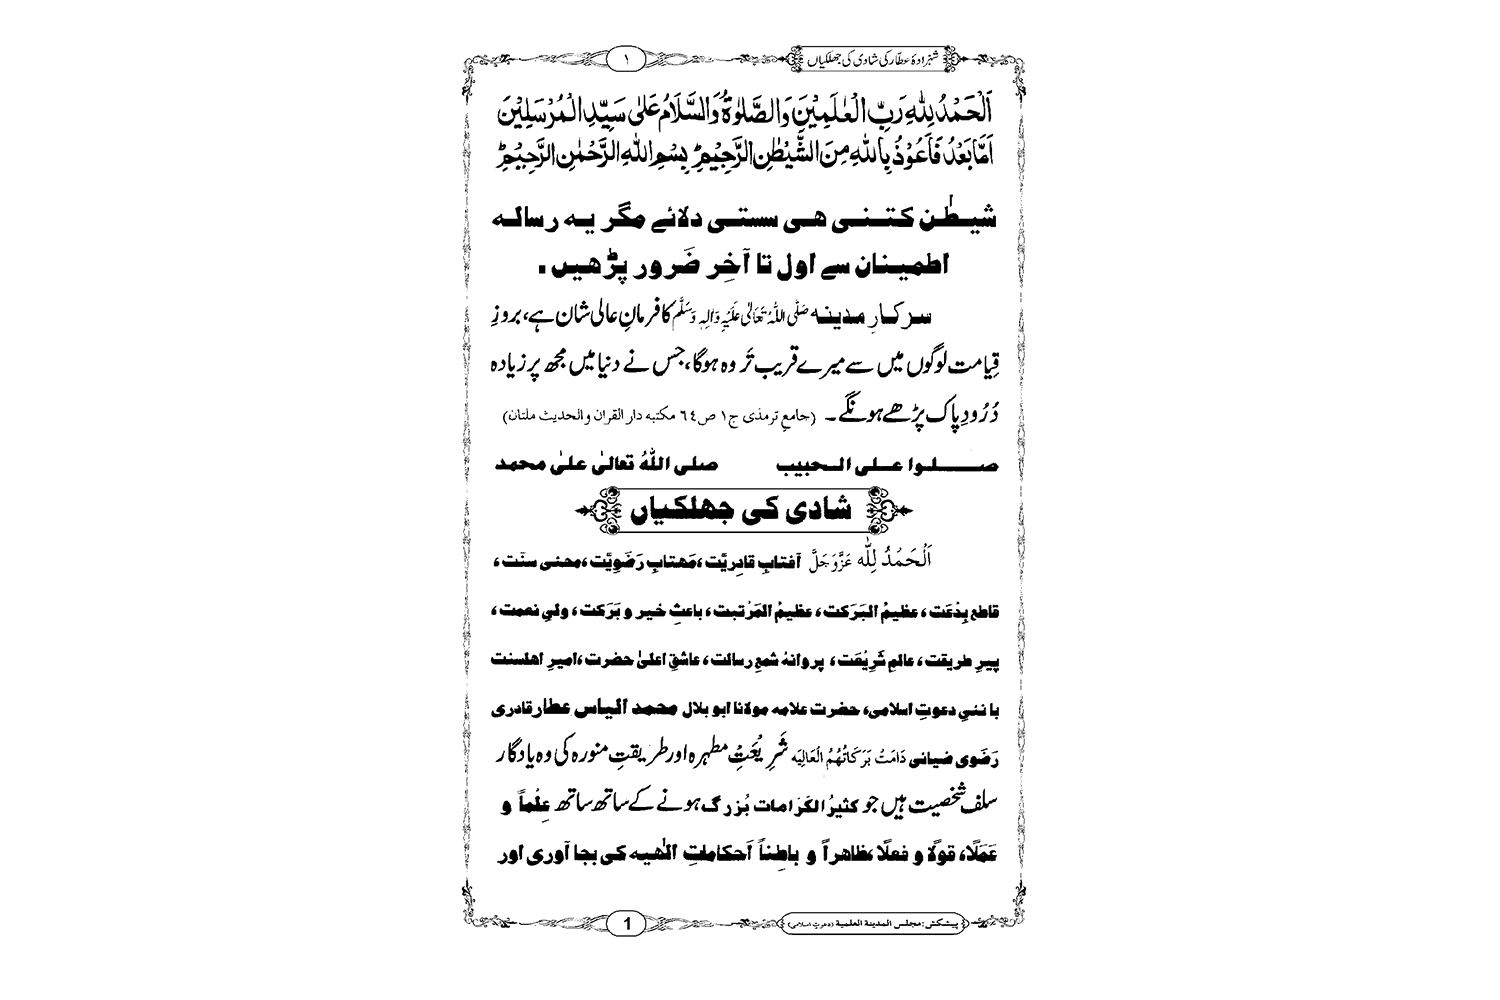 شہزادۂ عطّار کی شادی کی جھلکیاں
۱
اَلْحَمْدُ لِلّٰهِ رَبِّ الْعٰلَمِيْنَ وَالصَّلٰوةُ وَالسَّلَامُ عَلٰى سَيِّدِ الْمُرْسَلِيْنَ
اَمَّا بَعْدُ فَاَعُوْذُ بِاللّٰهِ مِنَ الشَّيْطٰنِ الرَّجِيْمِ ؕ بِسْمِ اللّٰهِ الرَّحْمٰنِ الرَّحِيْمِ ؕ
شیطٰن کتنی ھی سستی دلائے مگر یہ رسالہ
اطمینان سے اول تا آخِر ضَرور پڑھیں .
سرکارِ مدینہ صَلَّی اللّٰہُ تَعَالٰی عَلَیْہِ وَاٰلِہٖ وَسَلَّم کا فرمانِ عالی شان ہے، بروزِ
قِیامت لوگوں میں سے میرے قریب تَر وہ ہوگا، جس نے دنیا میں مجھ پر زیادہ
دُرُودِ پاک پڑھے ہونگے۔ (جامع ترمذی ج۱ ص٦٤ مکتبہ دار القران والحدیث ملتان)
صلوا علی الحبیب صلی اللّٰہُ تعالیٰ علیٰ محمد
شادی کی جھلکیاں
اَلْحَمْدُ لِلّٰہ عَزَّوَجَلَّ آفتابِ قادِریَّت ،مَھتابِ رَضَوِیَّت ،محئی سنّت ،
قاطع بِدْعَت ، عظیمُ البَرَکت، عظیمُ المَرْتبت ، باعثِ خیر و بَرَکت ، ولیِ نعمت ،
پیرِ طریقت ، عالمِ شَرِیْعَت ، پروانۂ شمعِ رسالت ، عاشقِ اعلیٰ حضرت ،امیرِ اھلسنت
با نئیِ دعوتِ اسلامی، حضرت علامہ مولانا ابو بلال محمد الیاس عطار قادری
رَضَوی ضیائی دَامَتْ بَرَکَاتُہُمُ الْعَالِیَہ شَرِیْعَتِ مطہرہ اور طریقتِ منورہ کی وہ یادگارِ
سلف شخصیت ہیں جو کثیرُ الکَرَامات بُزرگ ہونے کے ساتھ ساتھ عِلْماً و
عَمَلًا، قولًا و فعلًا ،ظاھراً و باطِناً اَحکاماتِ الٰھیہ کی بجا آوری اور
پیشکش : مجلس المدینۃ العلمیۃ (دعوتِ اسلامی)
1